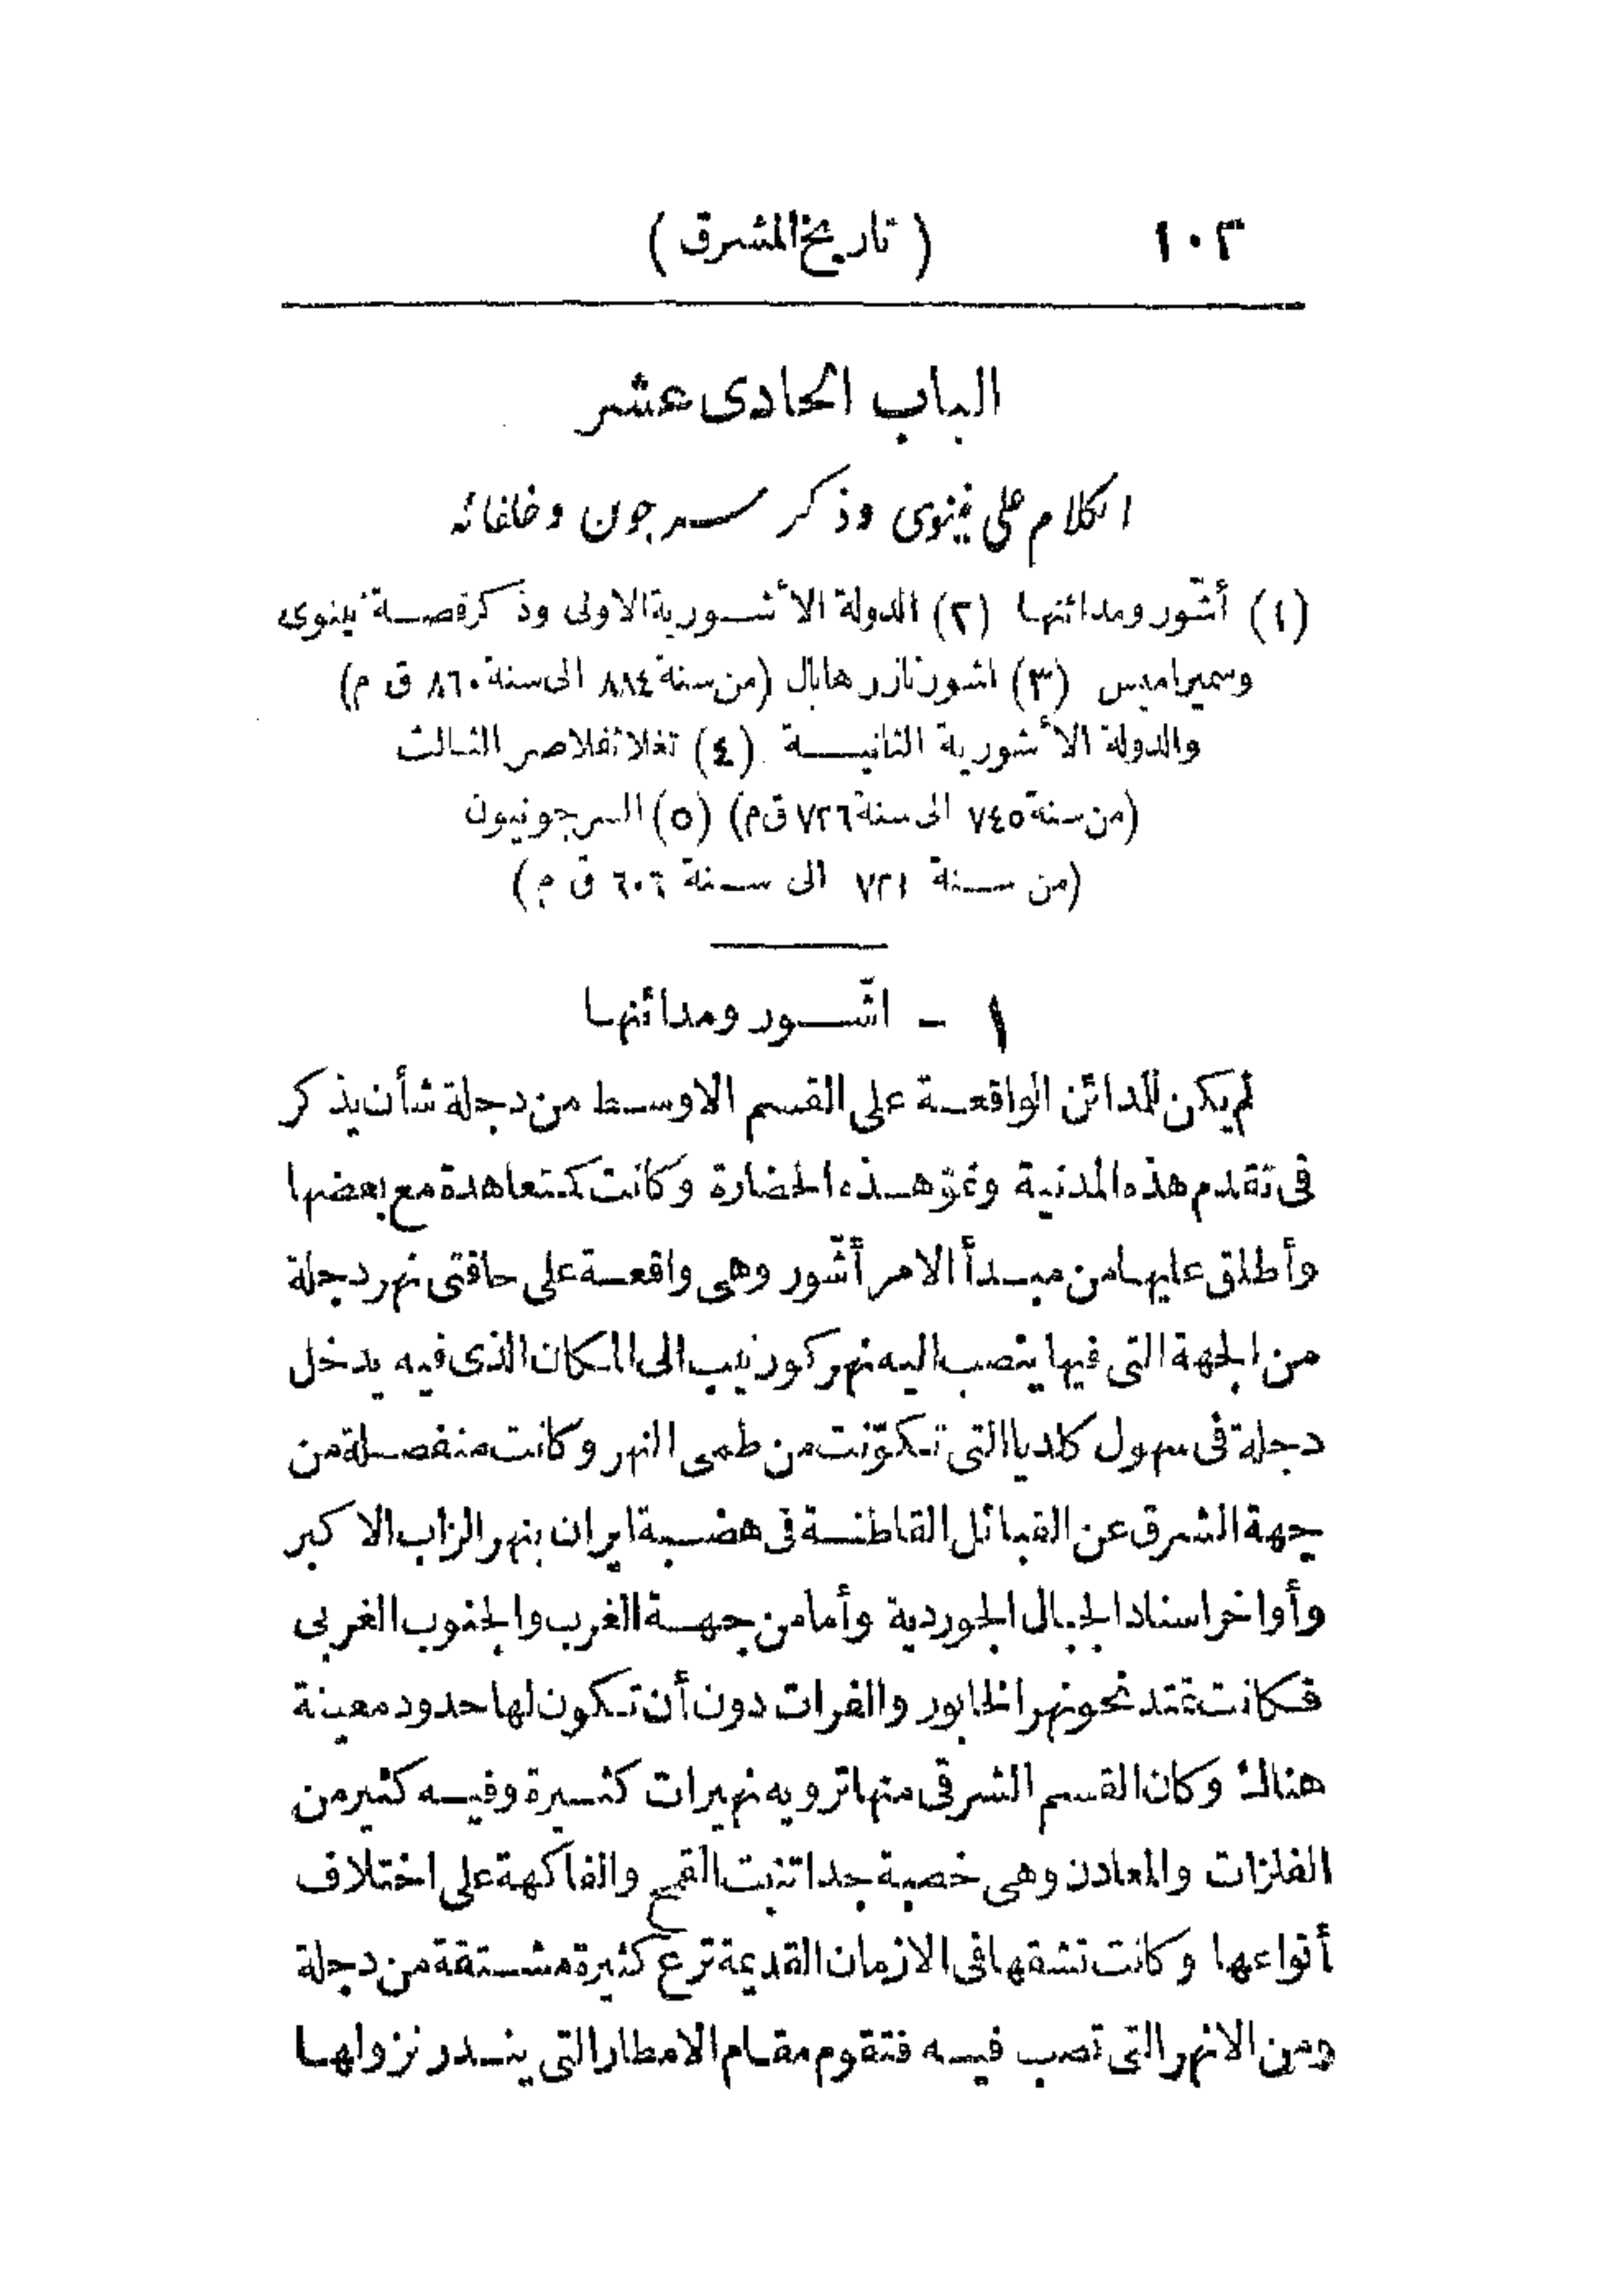 ١٠٢ (تاريخ المشرق)
الباب الحادى عشر
الكلام على نينوى وذكر سرجون وخلفائه
(١) أشّور ومدائنها (٢) الدولة الأشورية الاولى وذكر قصة نينوى
وسميراميس (٣) اشور نازر هابال (من سنة ٨٨٤ الى سنة ٨٦٠ ق م)
والدولة الأشورية الثانية (٤) تغلاثفلاصر الثالث
(من سنة ٧٤٥ الى سنة ٧٢٦ ق م) (٥) السرجونيون
(من سنة ٧٢١ الى سنة ٦٠٦ ق م)
١ - اشّور ومدائنها
لم يكن للمدائن الواقعة على القسم الاوسط من دجلة شأن يذكر
فى تقدم هذه المدنية ونموّ هذه الحضارة وكانت كمتعاهدة مع بعضها
وأطلق عليها من مبدأ الامر أشّور وهى واقعة على حافتى نهر دجلة
من الجهة التى فيها ينصب اليه نهر كورنيب الى المكان الذى فيه يدخل
دجلة فى سهول كلديا التى تكوّنت من طمى النهر وكانت منفصلة من
جهة الشرق عن القبائل القاطنة فى هضبة ايران بنهر الزاب الاكبر
وأواخر اسناد الجبال الجوردية وأما من جهة الغرب والجنوب الغربى
فكانت تمتد نحو نهر الخابور والفرات دون أن تكون لها حدود معينة
هناك وكان القسم الشرقى منها ترويه نهيرات كثيرة وفيه كثير من
الفلزات والمعادن وهى خصبة جدا تنبت القمح والفاكهة على اختلاف
أنواعها وكانت تشقها فى الازمان القديمة ترع كثيرة مشتقة من دجلة
ومن الانهر التى تصب فيه فتقوم مقام الامطار التى يندر نزولها